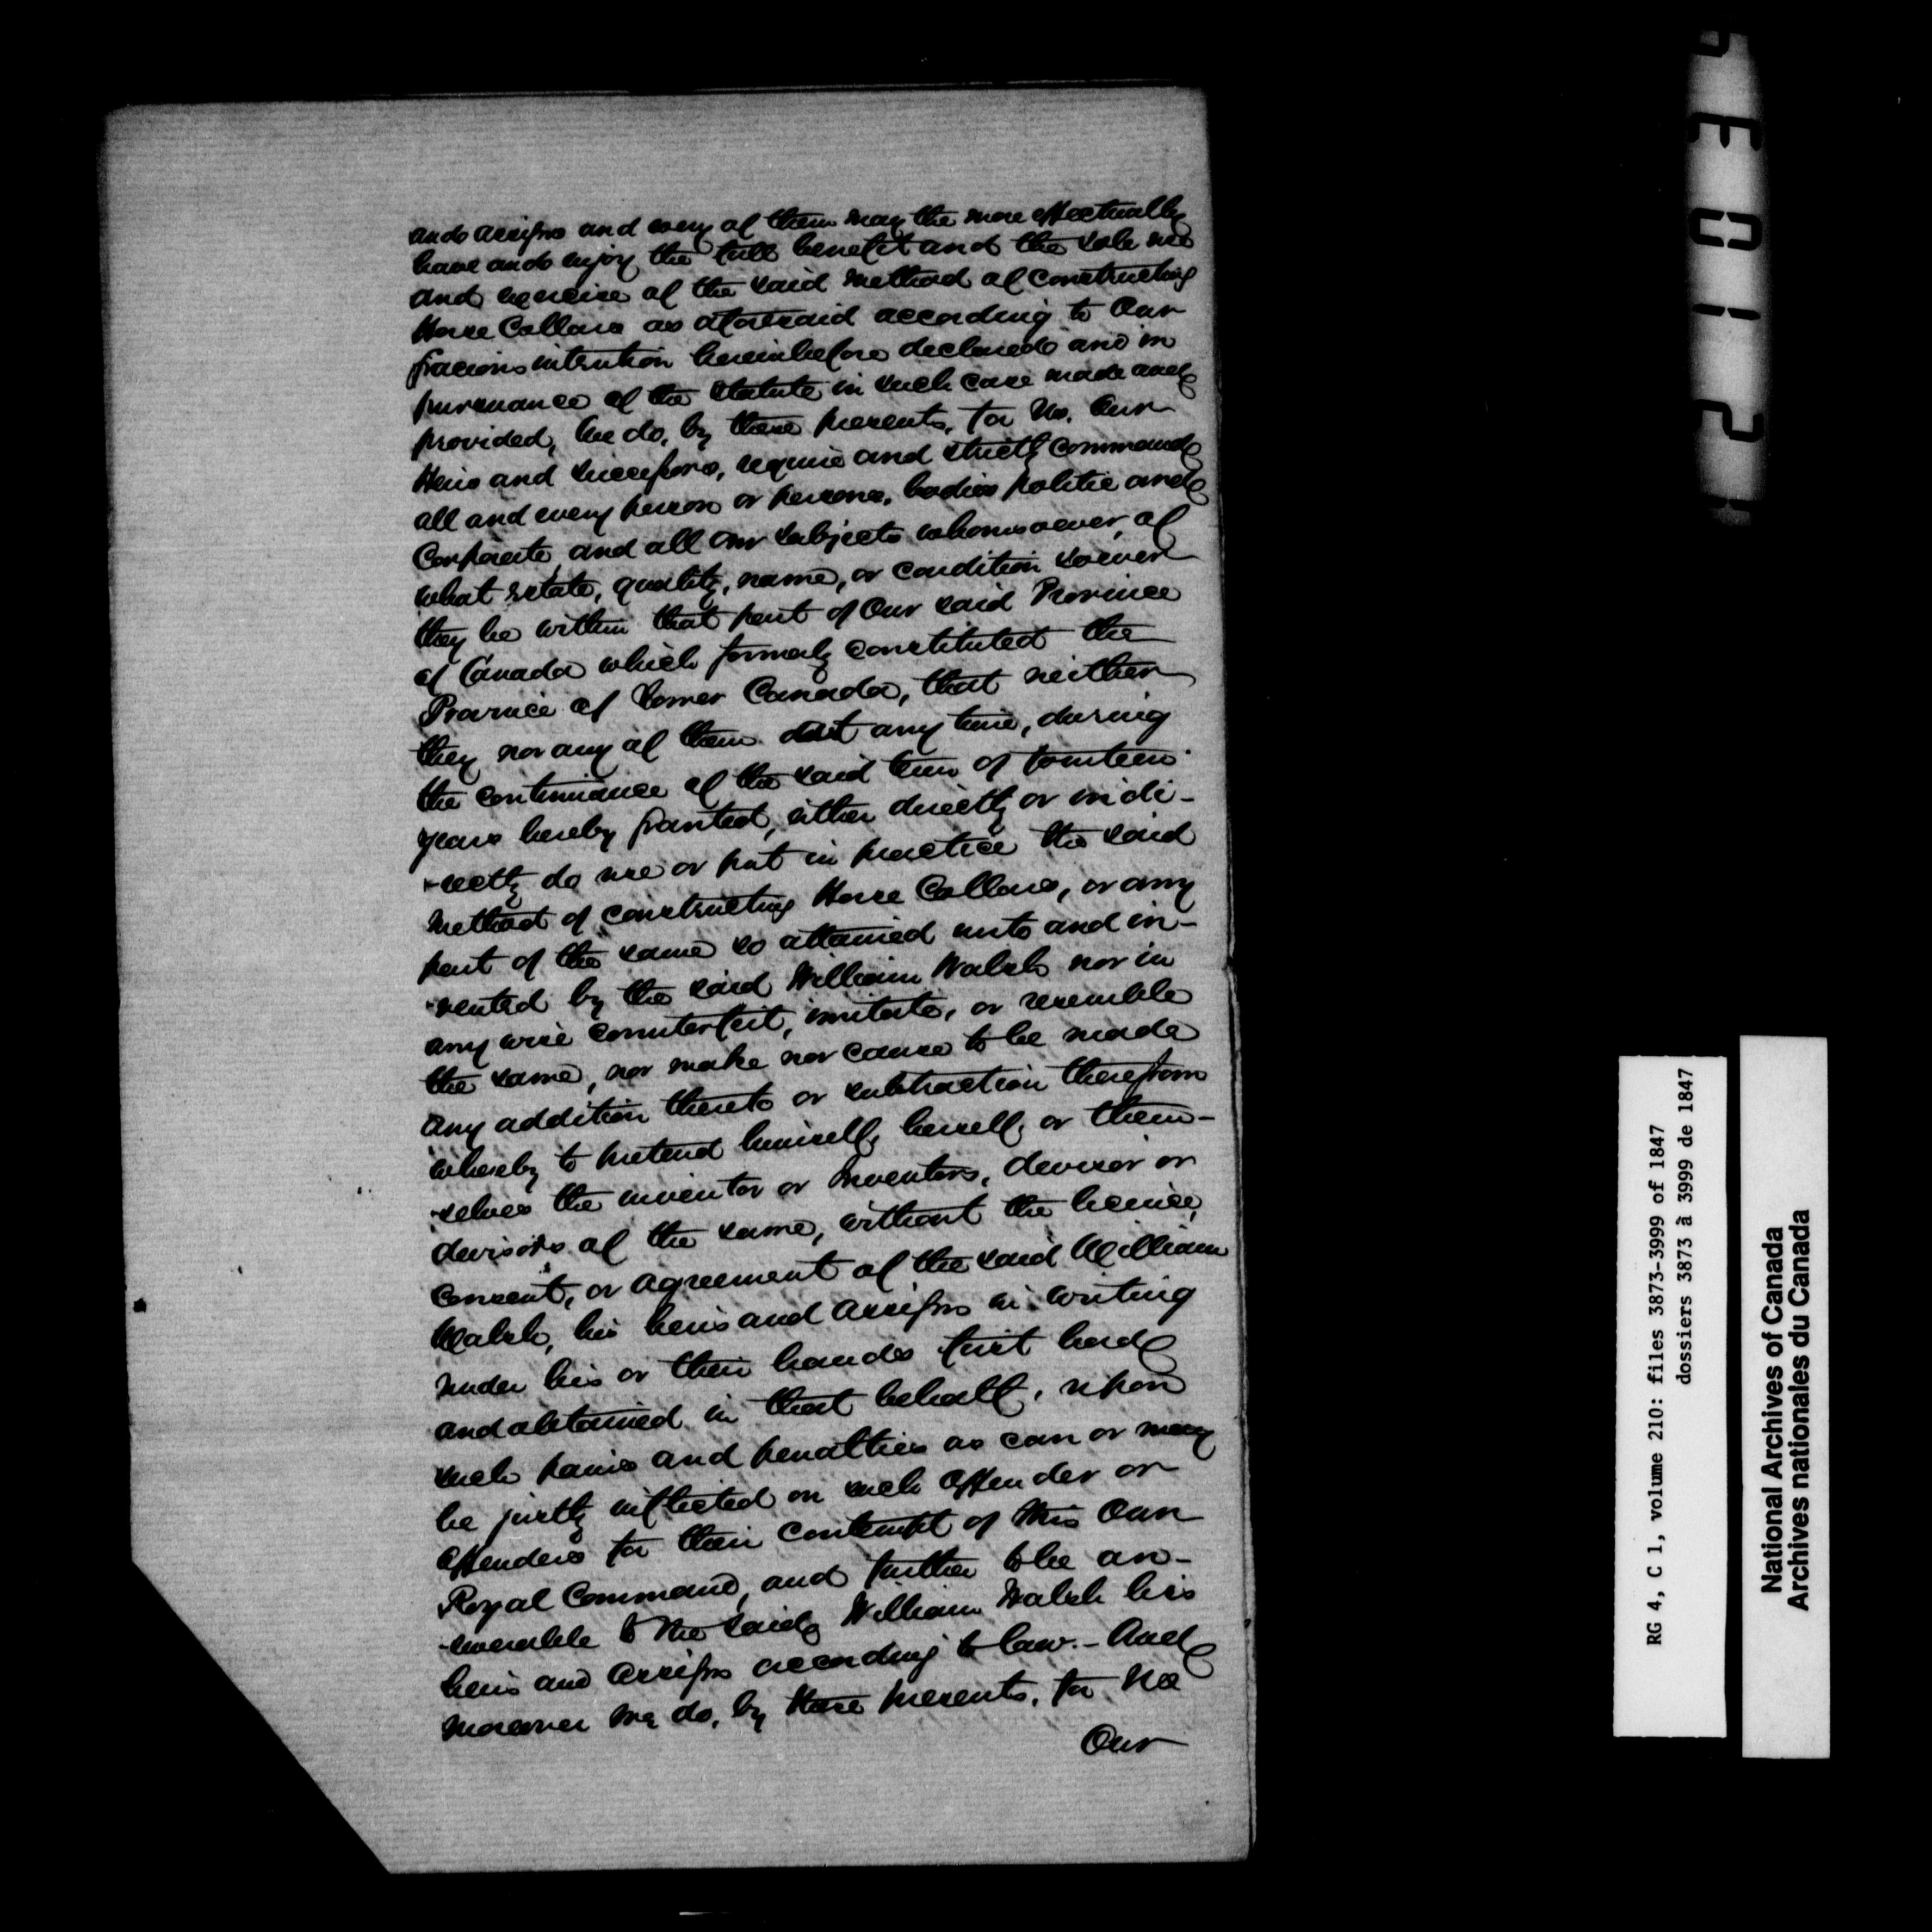 and assigns and every of them may the more effectually
have and enjoy the full benefit and the sole use
and exercise of the said method of constructing
Horse Collars as aforesaid according to Our
gracious intention hereinbefore declared and in
pursuance of the Statute in such case made and
provided, We do, by these presents, for Us, Our
Heirs and successors, require and strictly command
all and every person or persons, bodies politic and
Corporate, and all our subjects whomsoever, of
what estate, quality, name, or condition soever
they be within that part of Our said Province
of Canada which formerly constituted the
Province of Lower Canada, that neither
they nor any of them at any time, during
the continuance of the said term of fourteen
years hereby granted, either directly or indi-
-rectly do use or put in practice the said
method of constructing Horse Collars, or any
part of the same so attained unto and in-
-vented by the said William Walsh nor in
any wise counterfeit, imitate, or resemble
the same, nor make nor cause to be made
any addition thereto or subtraction therefrom
whereby to pretend himself, herself, or them-
-selves the inventor or Inventors, devisor or
devisors of the same, without the licence,
consent, or agreement of the said William
Walsh, his heirs and assigns in writing
under his or their hands first had
and obtained in that behalf, upon
such pains and penalties as can or may
be justly inflicted on such offender or
offenders for their contempt of this Our
Royal Command, and further to be an-
-swerable to the said William Walsh his
heirs and assigns according to law. - And
moreover we do, by these presents, for Us
Our
5E012
RG 4, C 1, volume 210: files 3873-3999 of 1847
dossiers 3873 à 3999 de 1847
National Archives of Canada
Archives nationales du Canada